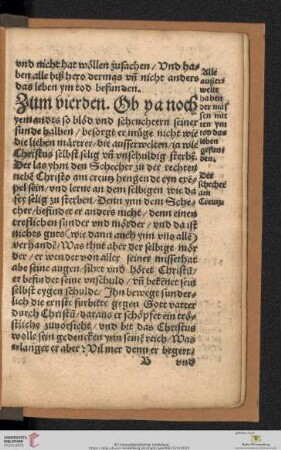 vnd nicht hat wöllen zusachen / Vnd ha-
ben alle biß hero dermas vñ nicht anders
das leben ym tod befunden.
Zum vierden. Ob ya noch
yemandts so blöd vnd scheuchtern seiner
sunde halben / besorgt er müge nicht wie
die lieben märtrer / die ausserwelten / ia wie
Christus selbst selig vñ vnschuldig sterbē.
Der las yhm den Schecher zu der rechten
nebē Christo am creutz hengen de eyn exē-
pel sein / vnd lerne an dem selbigen wie da
sey selig zu sterben / Denn ynn dem Sche-
cher / befindet er anders nicht / denn einen
treflichen sunder vnd mörder / vnd da ist
nichts guts / wie dann auch ynn vns allē
verhandē / Was thut aber der selbige mör
der / er wendet von aller seiner missethat
abe seine augen / sihet vnd höret Christū /
er befindet seine vnschuld / vñ bekēnet sein
selbst eygen schulde / Ihn bewege sunder-
lich die ernste furbitte gegen Gott vatter
durch Christū / daraus er schöpfet ein trö-
stliche zuuorsicht / vnd bit das Christus
wolle sein gedencken ynn seinē reich / Was
erlanget er aber? Vil mer denn er begert /
B vnd
Alle
außer-
welte
haben
der mas
sen mit
ten ym
tod das
leben
gefun-
den.
Der
schecher
am
Creutz